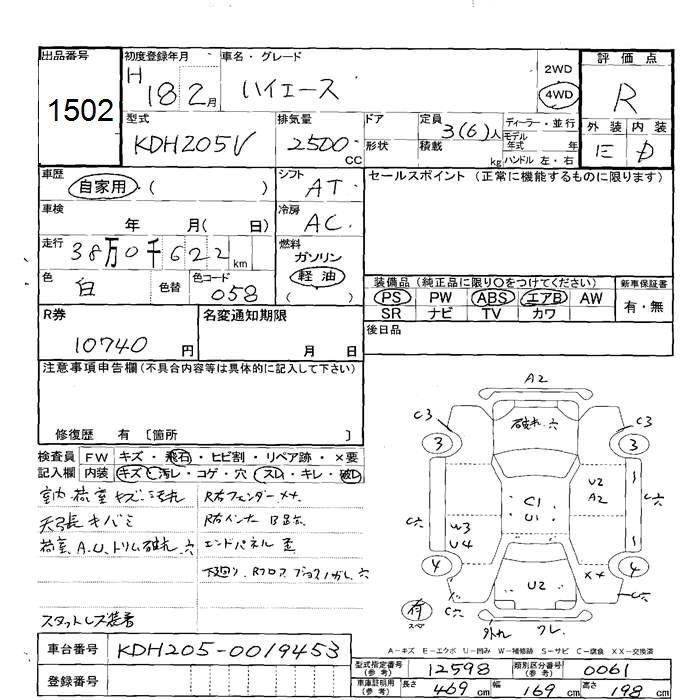 出品番号
1502
初度登録年月
H 18 2月
車名・グレード
ハイエース
2WD
4WD
評価点
R
外装 内装
E D
型式
KDH205V
排気量
2500
CC
ドア
形状
定員
3(6)人
積載
kg
ディーラー・並行
モデル
年式 年
ハンドル 左・右
車歴
自家用・( )
シフト
AT
セールスポイント (正常に機能するものに限ります)
車検
年 月( 日)
冷房
AC
走行
38万0千622km
燃料
ガソリン
軽油
( )
色
白
色替
色コード
058
装備品(純正品に限り○をつけてください)
PS PW ABS エアB AW
SR ナビ TV カワ
新車保証書
有・無
R券
10740円
名変通知期限
月 日
後日品
注意事項申告欄(不具合内容等は具体的に記入して下さい)
修復歴 有 〔箇所 〕
検査員
記入欄
FW キズ・飛石・ヒビ割・リペア跡・×要
内装 キズ・汚レ・コゲ・穴・スレ・キレ・破レ
室内 荷室 キズ・汚れ
天張 キバミ
荷室、A.U.トリム破れ、穴
スタットレス装着
R右フェンダー
R右インナー
エンドパネル 歪
下廻り、Rフロア
穴
A2
C3
C3
3
3
破れ、穴
C1
U1
U2
A2
W3
U4
C穴
C穴
4
4
××
U2
C穴
C穴
有
スペ
外れ
ワレ
A-キズ E-エクボ U-凹み W-補修跡 S-サビ C-腐食 XX-交換済
車台番号
KDH205-0019453
登録番号
型式指定番号
(参考)
12598
類別区分番号
(参考)
0061
車庫証明用
(参考)
長さ 469cm 幅 169cm 高さ 198cm